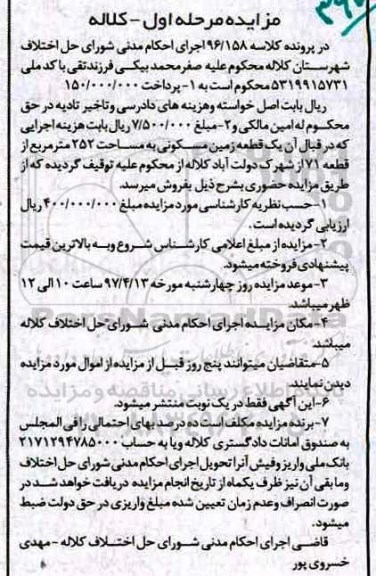 مزایده مرحله اول - کلاله
در پرونده کلاسه ۹۶/۱۵۸ اجرای احکام مدنی شورای حل اختلاف
شهرستان کلاله محکوم علیه صفر محمد بیکی فرزند تقی با کد ملی
۵۳۱۹۹۱۵۷۳۱ محکوم است به ۱- پرداخت ۱۵۰/۰۰۰/۰۰۰
ریال بابت اصل خواسته وهزینه های دادرسی وتاخیر تادیه در حق
محکوم له امین مالکی و ۲- مبلغ ۷/۵۰۰/۰۰۰ ریال بابت هزینه اجرایی
که در قبال آن یک قطعه زمین مسکونی به مساحت ۲۵۲ مترمربع از
قطعه ۷۱ از شهرک دولت آباد کلاله از محکوم علیه توقیف گردیده که از
طریق مزایده حضوری بشرح ذیل بفروش میرسد.
۱-حسب نظریه کارشناسی مورد مزایده مبلغ ۴۰۰/۰۰۰/۰۰۰ ریال
ارزیابی گردیده است.
۲-مزایده از مبلغ اعلامی کارشناس شروع وبه بالاترین قیمت
پیشنهادی فروخته میشود.
۳-موعد مزایده روز چهارشنبه مورخه ۹۷/۴/۱۳ ساعت ۱۰ الی ۱۲
ظهر میباشد.
۴-مکان مزایده اجرای احکام مدنی شورای حل اختلاف کلاله
میباشد.
۵-متقاضیان میتوانند پنج روز قبل از مزایده از اموال مورد مزایده
دیدن نمایند.
۶-این آگهی فقط در یک نوبت منتشر میشود.
۷-برنده مزایده مکلف است ده درصد بهای احتمالی را فی المجلس
به صندوق امانات دادگستری کلاله ویا به حساب ۲۱۷۱۲۹۴۷۸۵۰۰۰
بانک ملی واریز وفیش آنرا تحویل اجرای احکام مدنی شورای حل اختلاف
ومابقی آن نیز ظرف یکماه از تاریخ انجام مزایده دریافت خواهد شد در
صورت انصراف وعدم زمان تعیین شده مبلغ واریزی در حق دولت ضبط
میشود.
قاضی اجرای احکام مدنی شورای حل اختلاف کلاله - مهدی
خسروی پور